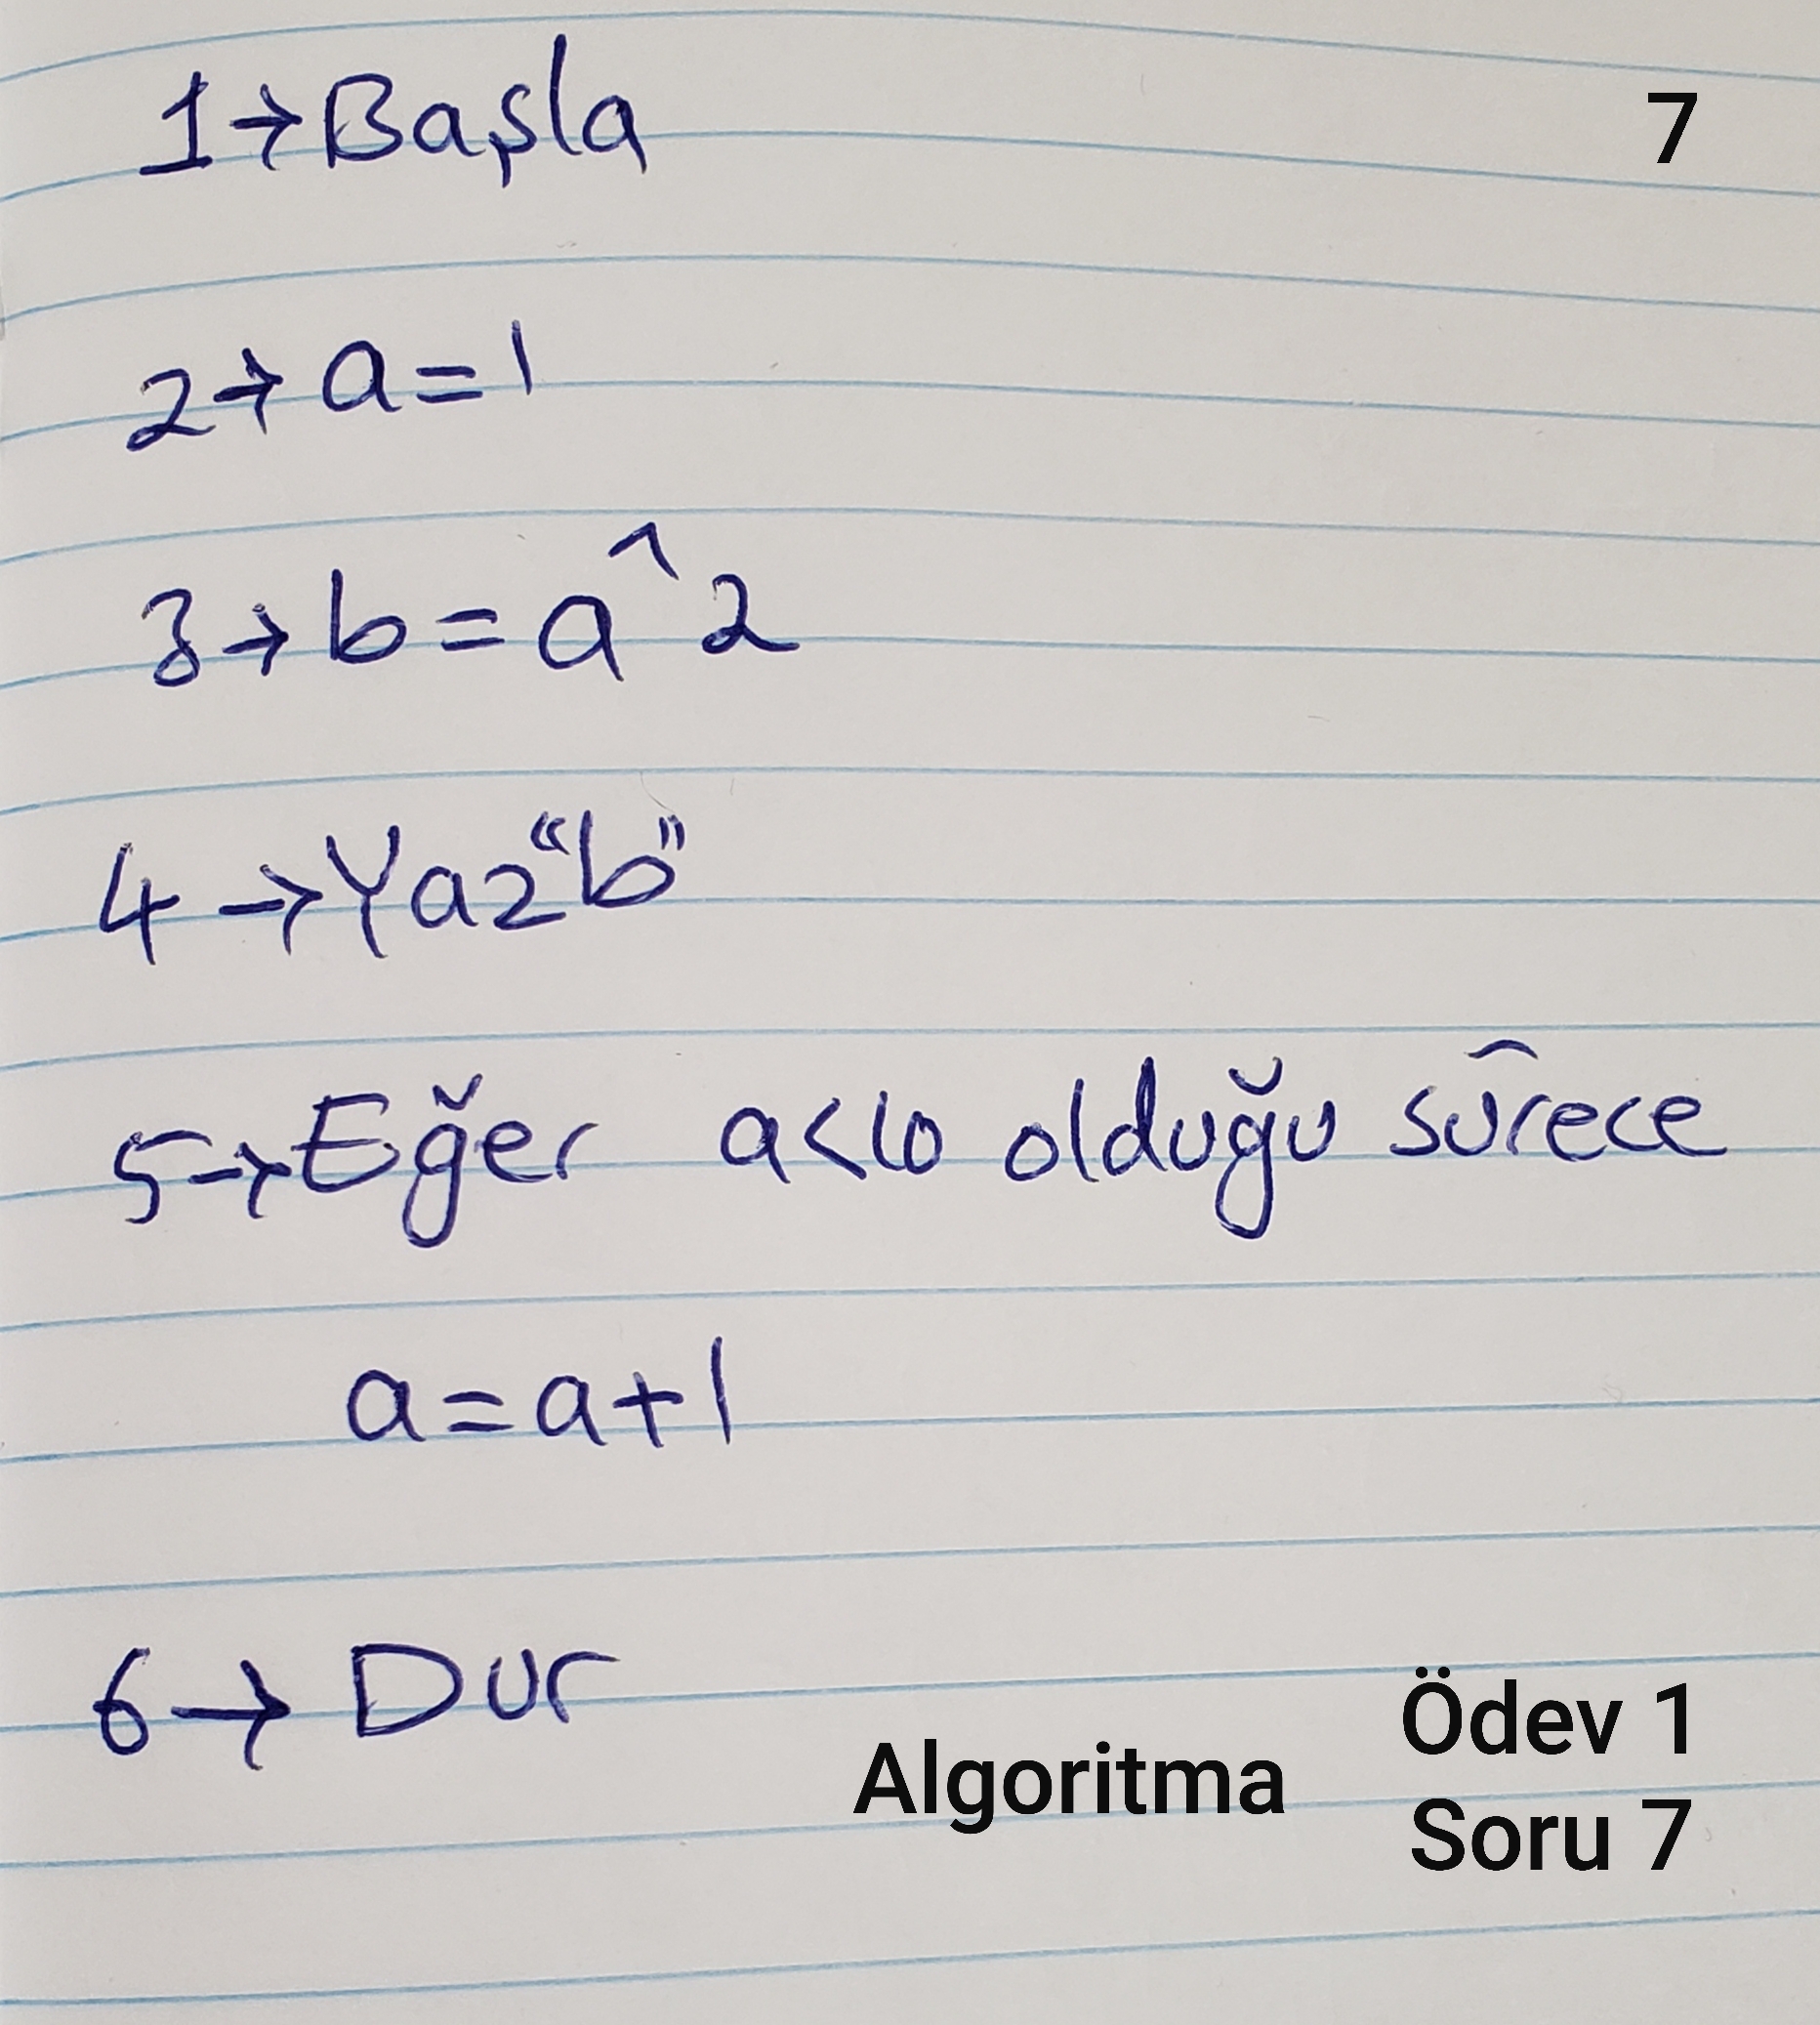 1→Başla
7
2→ a=1
3→ b = a^2
4 →Yaz“b”
5→Eğer a<10 olduğu sürece
a=a+1
6→ Dur
Algoritma
Ödev 1
Soru 7